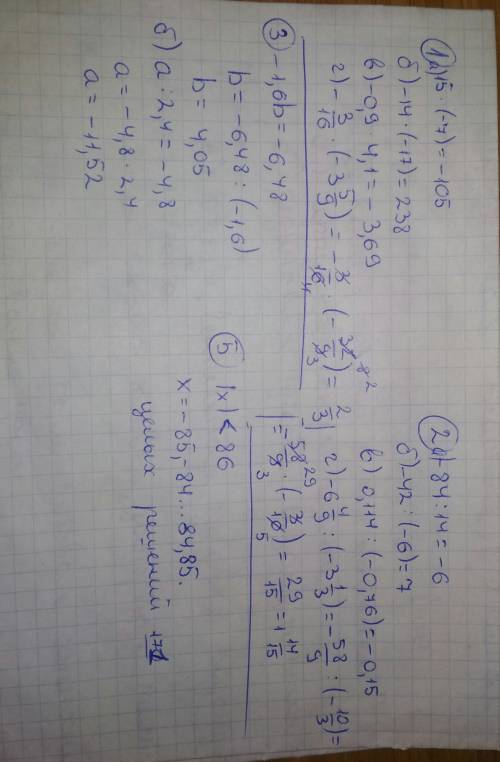 ① а) 15 · (-7) = -105
б) -14 · (-17) = 238
в) -0,9 · 4,1 = -3,69
г) - 3/16 · (-3 5/9) = - 3/16 · (- 32/9) = 2/3
② а) -84 : 14 = -6
б) -42 : (-6) = 7
в) 0,114 : (-0,76) = -0,15
г) -6 4/9 : (-3 1/3) = - 58/9 : (- 10/3) =
= 58/9 · (- 3/10) = 29/15 = 1 14/15
③ -1,6b = -6,48
b = -6,48 : (-1,6)
b = 4,05
б) a : 2,4 = -4,8
a = -4,8 · 2,4
a = -11,52
⑤ |x| < 86
x = -85, -84 ... 84, 85.
целых решений 171